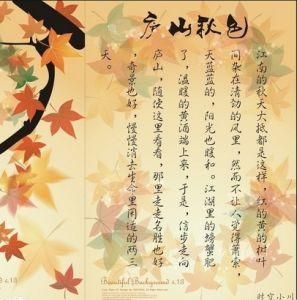 庐山秋色
江南的秋天大抵都是这样，红的黄的树叶
间杂在清劲的风里，然而不让人觉得萧索，
天蓝蓝的，阳光也暖和。江湖里的螃蟹肥
了，温暖的黄酒端上来，于是，信步走向
庐山，随便这里看看，那里走走名胜也好
，奇景也好，慢慢消去生命里闲适的两三
天。
Beautiful Background v.18
时空小川